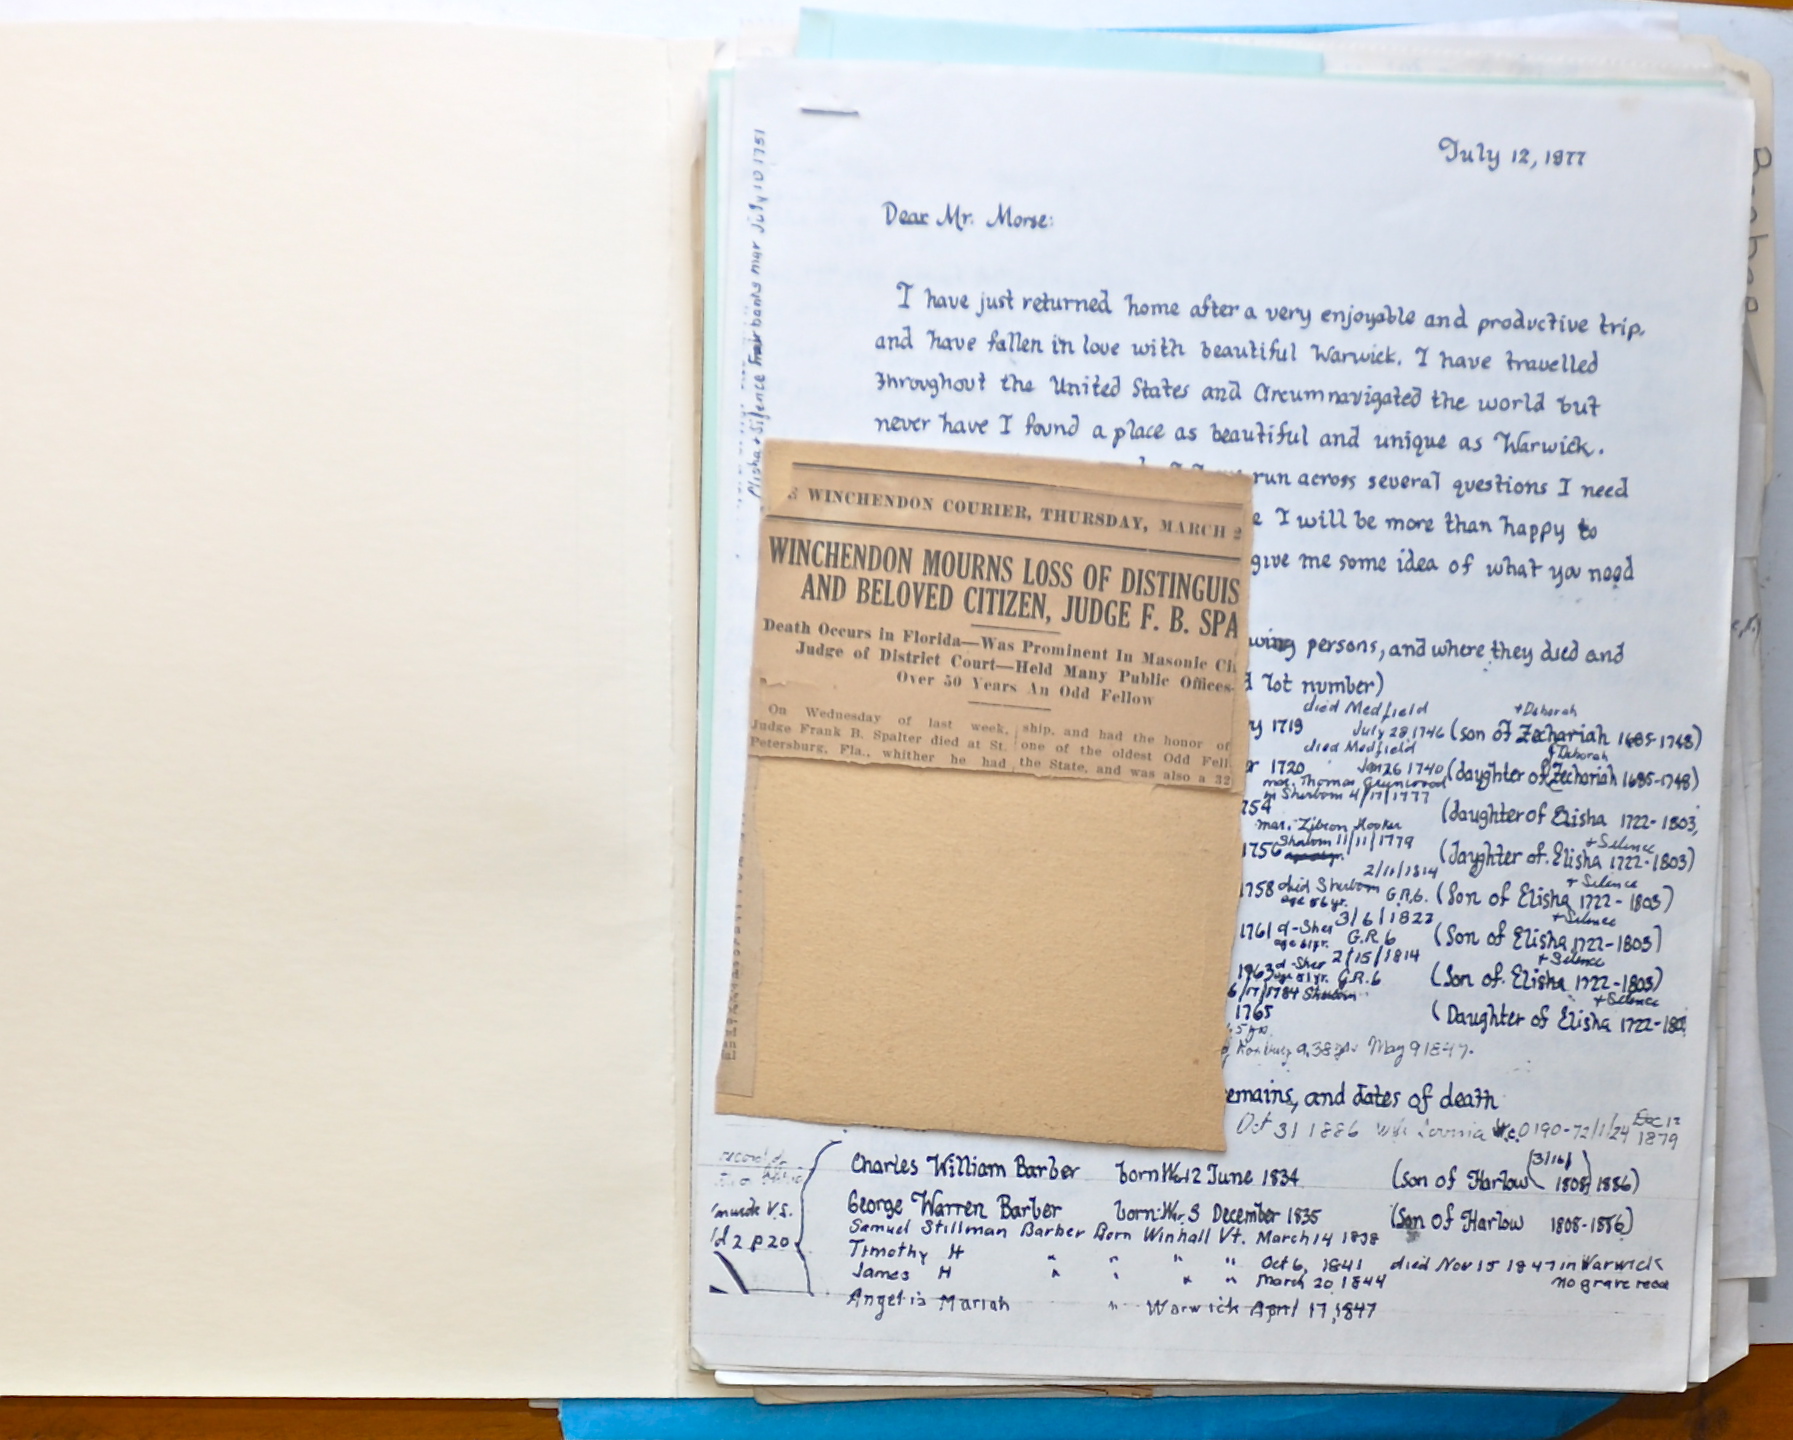 July 12, 1977
Dear Mr. Morse:
I have just returned home after a very enjoyable and productive trip,
and have fallen in love with beautiful Warwick. I have travelled
throughout the United States and Circumnavigated the world but
never have I found a place as beautiful and unique as Warwick.
run across several questions I need
I will be more than happy to
give me some idea of what you need
persons, and where they died and
lot number)
died Medfield +Deborah
1719 July 28 1746 (son of Zechariah 1685-1748)
died Medfield & Deborah
1720 Jan 26 1740 (daughter of Zechariah 1685-1748)
mar. Thomas Greenwood
in Sherborn 4/17/1777
(daughter of Elisha 1722-1803)
mar. Zibeon Hooker + Silence
1756 11/11/1779 (daughter of Elisha 1722-1803)
2/11/1814 + Silence
1758 died Sherborn G.R.6. (Son of Elisha 1722-1803)
age 56 yr.
3/6/1822 + Silence
1761 d-Sher G.R.6 (Son of Elisha 1722-1803)
age 61 yr.
2/15/1814 + Silence
d-Sher G.R.6 (Son of Elisha 1722-1803)
age 51 yr.
6/17/1784 Sherborn + Silence
1765 (Daughter of Elisha 1722-
a. 38 May 9 1847.
and dates of death
Oct 31 1886 wife Dec 12 1879
record
V.S.
p 20
Charles William Barber born 12 June 1834 (son of Harlow 3/16/ 1808 1886)
George Warren Barber born War. 3 December 1835 (Son of Harlow 1808-1886)
Samuel Stillman Barber Born Winhall Vt. March 14 1838
Timothy H " " " " Oct 6, 1841 died Nov 15 1847 in Warwick
James H " " " " March 20 1844 no grave
Mariah " Warwick April 17, 1847
Elisha + Silence Fairbanks mar July 10 1751
E WINCHENDON COURIER, THURSDAY, MARCH 2
WINCHENDON MOURNS LOSS OF DISTINGUIS
AND BELOVED CITIZEN, JUDGE F. B. SPA
Death Occurs in Florida—Was Prominent In Masonic Ci
Judge of District Court—Held Many Public Offices-
Over 50 Years An Odd Fellow
On Wednesday of last week,
Judge Frank B. Spalter died at St.
Petersburg, Fla., whither he had
ship, and had the honor of
one of the oldest Odd Fell
the State, and was also a 32